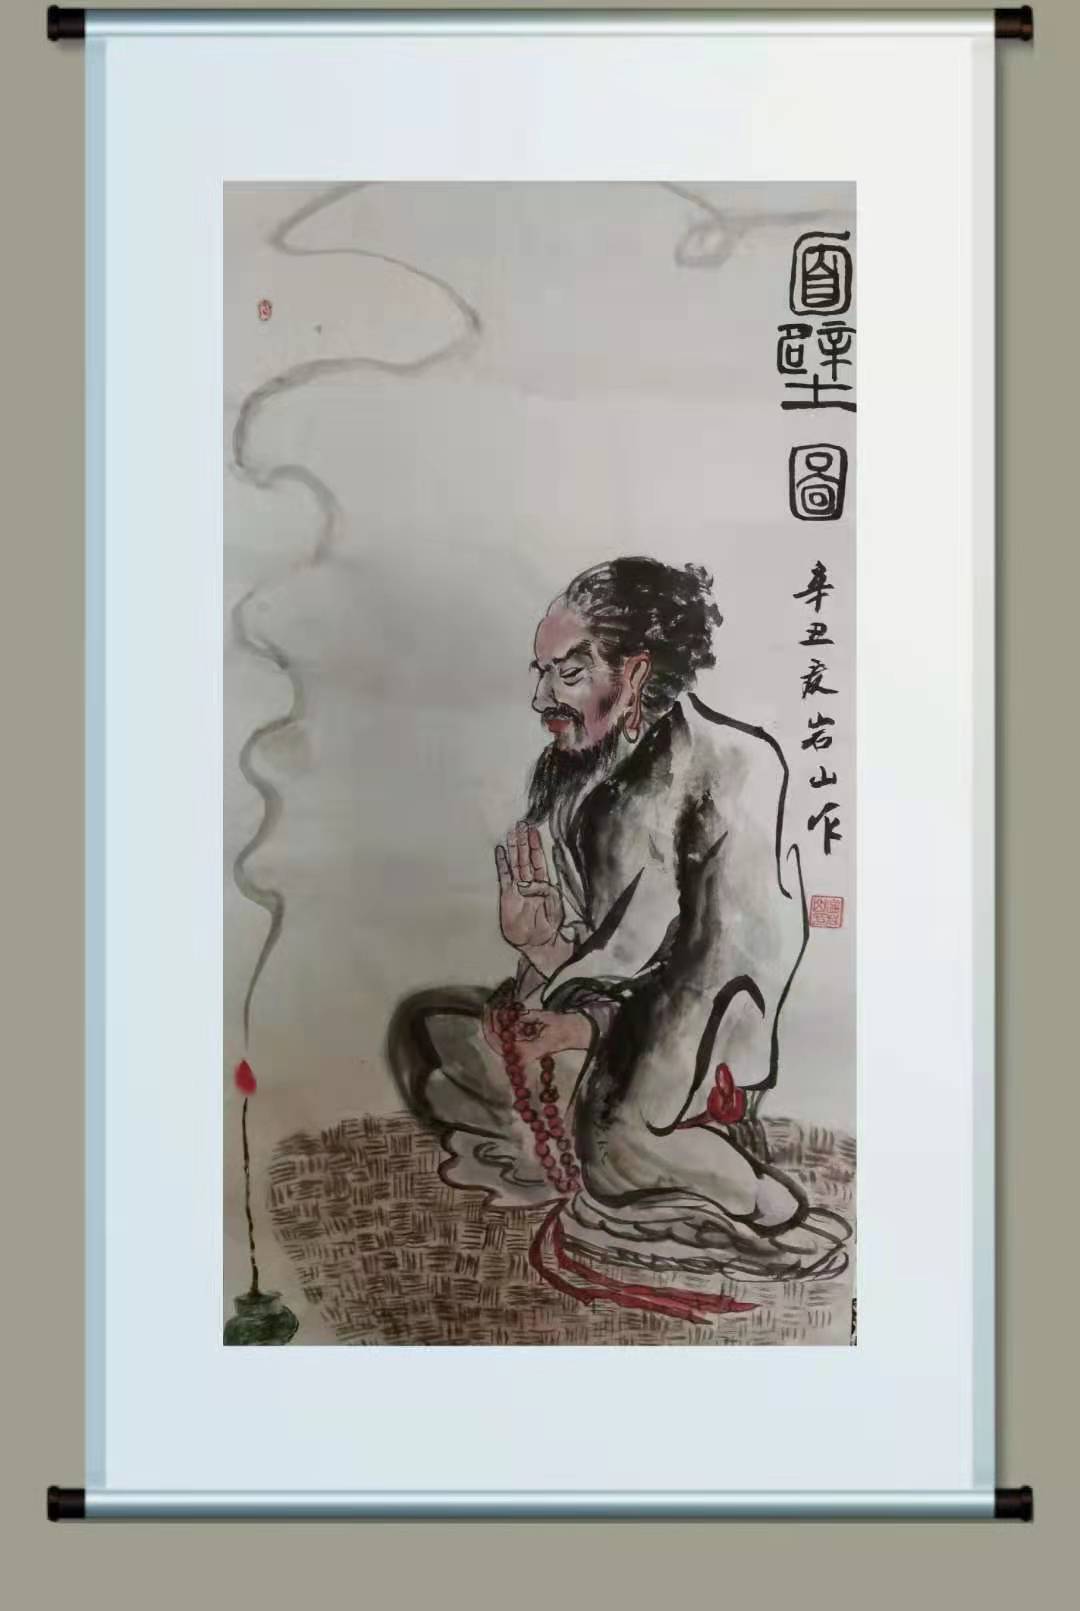 面壁圖
辛丑夏岩山作